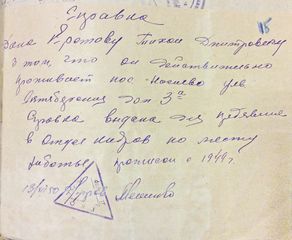 Справка
15
Дана Кротову Тихон Дмитровичу
в том, что он действительно
проживает пос. Косиево ул.
Октябрьская дом 3а
Справка выдана для предъявле
в отдел кадров по месту
работы прописан с 1949 г.